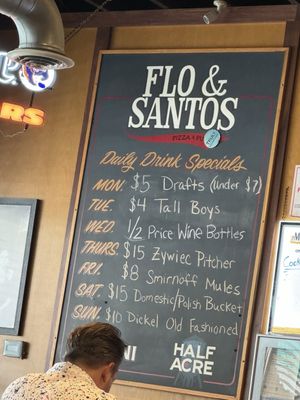 FLO &
SANTOS
PIZZA & PUB
Daily Drink Specials
MON. $5 Drafts (under $7)
TUE. $4 Tall Boys
WED. 1/2 Price Wine Bottles
THURS. $15 Zywiec Pitcher
FRI. $8 Smirnoff Mules
SAT. $15 Domestic/Polish Bucket
SUN. $10 Dickel Old Fashioned
HALF
ACRE